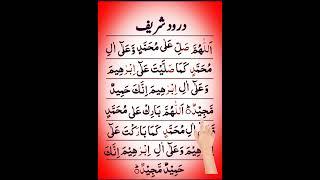 درود شریف
اَللّٰهُمَّ صَلِّ عَلٰى مُحَمَّدٍ وَّعَلٰٓى اٰلِ
مُحَمَّدٍ كَمَا صَلَّيْتَ عَلٰٓى اِبْرٰهِيْمَ
وَعَلٰٓى اٰلِ اِبْرٰهِيْمَ اِنَّكَ حَمِيْدٌ
مَّجِيْدٌ اَللّٰهُمَّ بَارِكْ عَلٰى مُحَمَّدٍ
اٰلِ مُحَمَّدٍ كَمَا بَارَكْتَ عَلٰٓى
اِبْرٰهِيْمَ وَعَلٰٓى اٰلِ اِبْرٰهِيْمَ اِنَّكَ
حَمِيْدٌ مَّجِيْدٌ